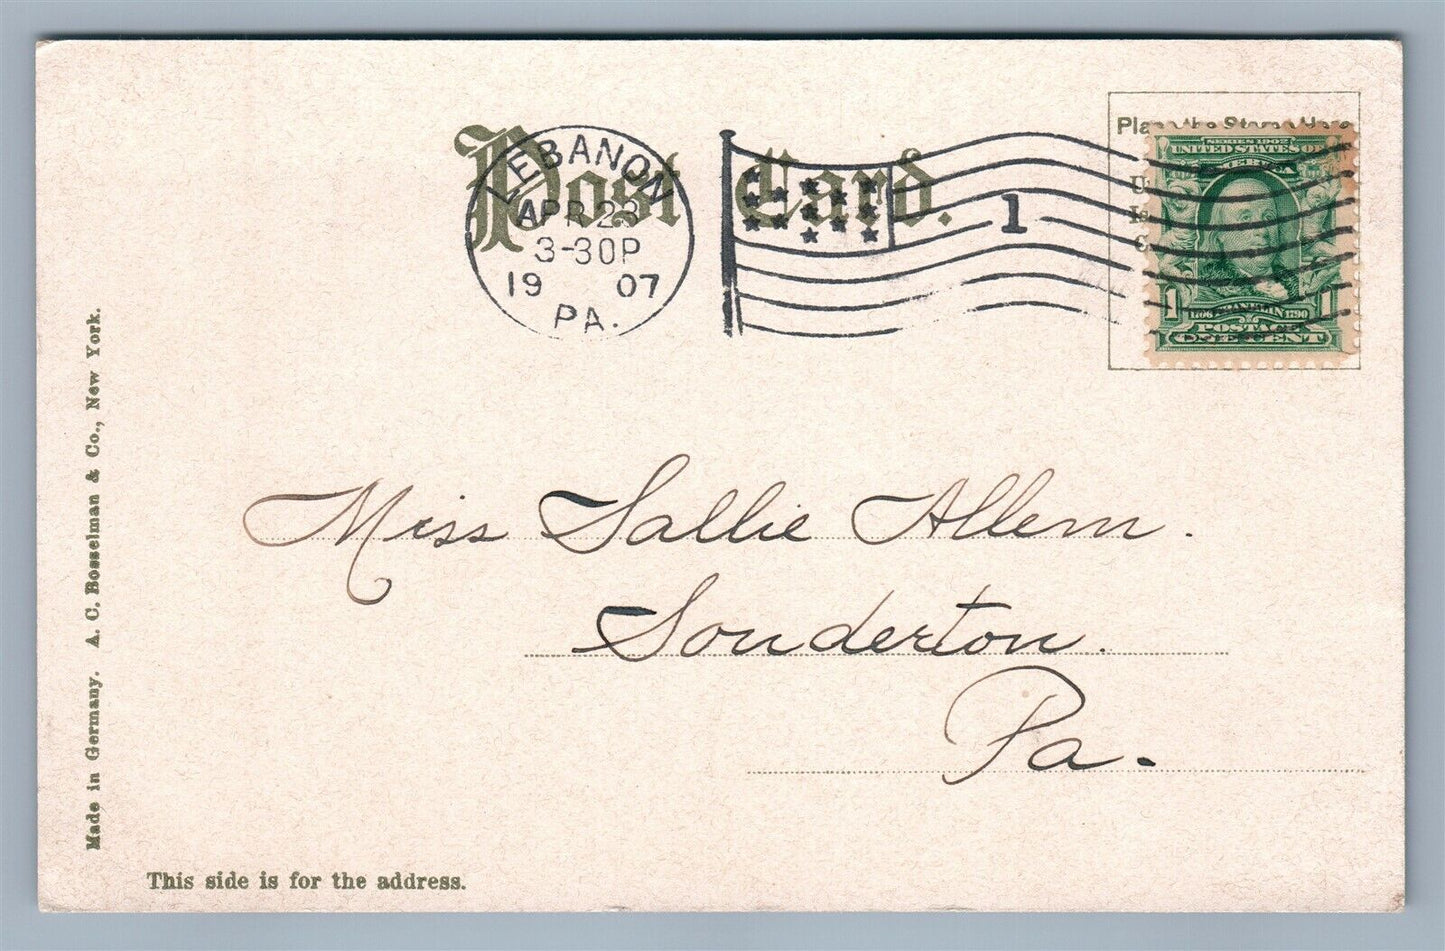 Post Card.
LEBANON
APR 23
3-30P
19 07
PA.
1
SERIES 1902
UNITED STATES OF
1 FRANKLIN 1
1706 1790
POSTAGE
ONE CENT
Miss Sallie Allem.
Souderton.
Pa.
Made in Germany. A. C. Bosselman & Co., New York.
This side is for the address.